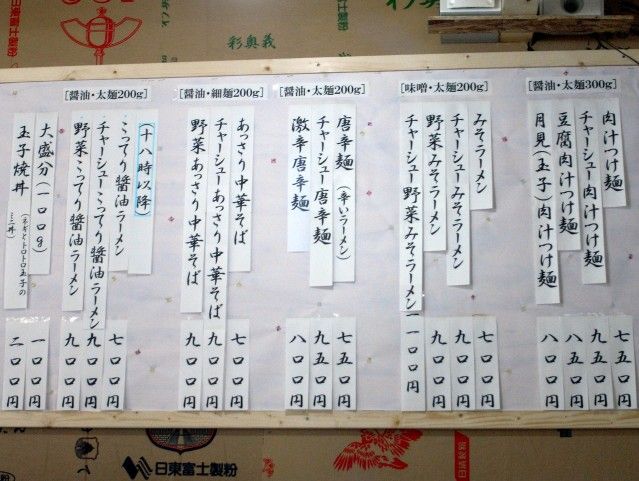 彩奥義
[醤油・太麺300g]
肉汁つけ麺
七五〇円
チャーシュー肉汁つけ麺
九五〇円
豆腐肉汁つけ麺
八五〇円
月見(玉子)肉汁つけ麺
八〇〇円
[味噌・太麺200g]
みそラーメン
七〇〇円
チャーシューみそラーメン
九〇〇円
野菜みそラーメン
九〇〇円
チャーシュー野菜みそラーメン
一一〇〇円
[醤油・太麺200g]
唐辛麺(辛いラーメン)
七五〇円
チャーシュー唐辛麺
九五〇円
激辛唐辛麺
八〇〇円
[醤油・細麺200g]
あっさり中華そば
七〇〇円
チャーシューあっさり中華そば
九〇〇円
野菜あっさり中華そば
九〇〇円
[醤油・太麺200g]
(十八時以降)
こってり醤油ラーメン
七〇〇円
チャーシューこってり醤油ラーメン
九〇〇円
野菜こってり醤油ラーメン
九〇〇円
大盛分(一〇〇g)
一〇〇円
玉子焼丼(ネギとトロトロ玉子のミニ丼)
二〇〇円
日東富士製粉